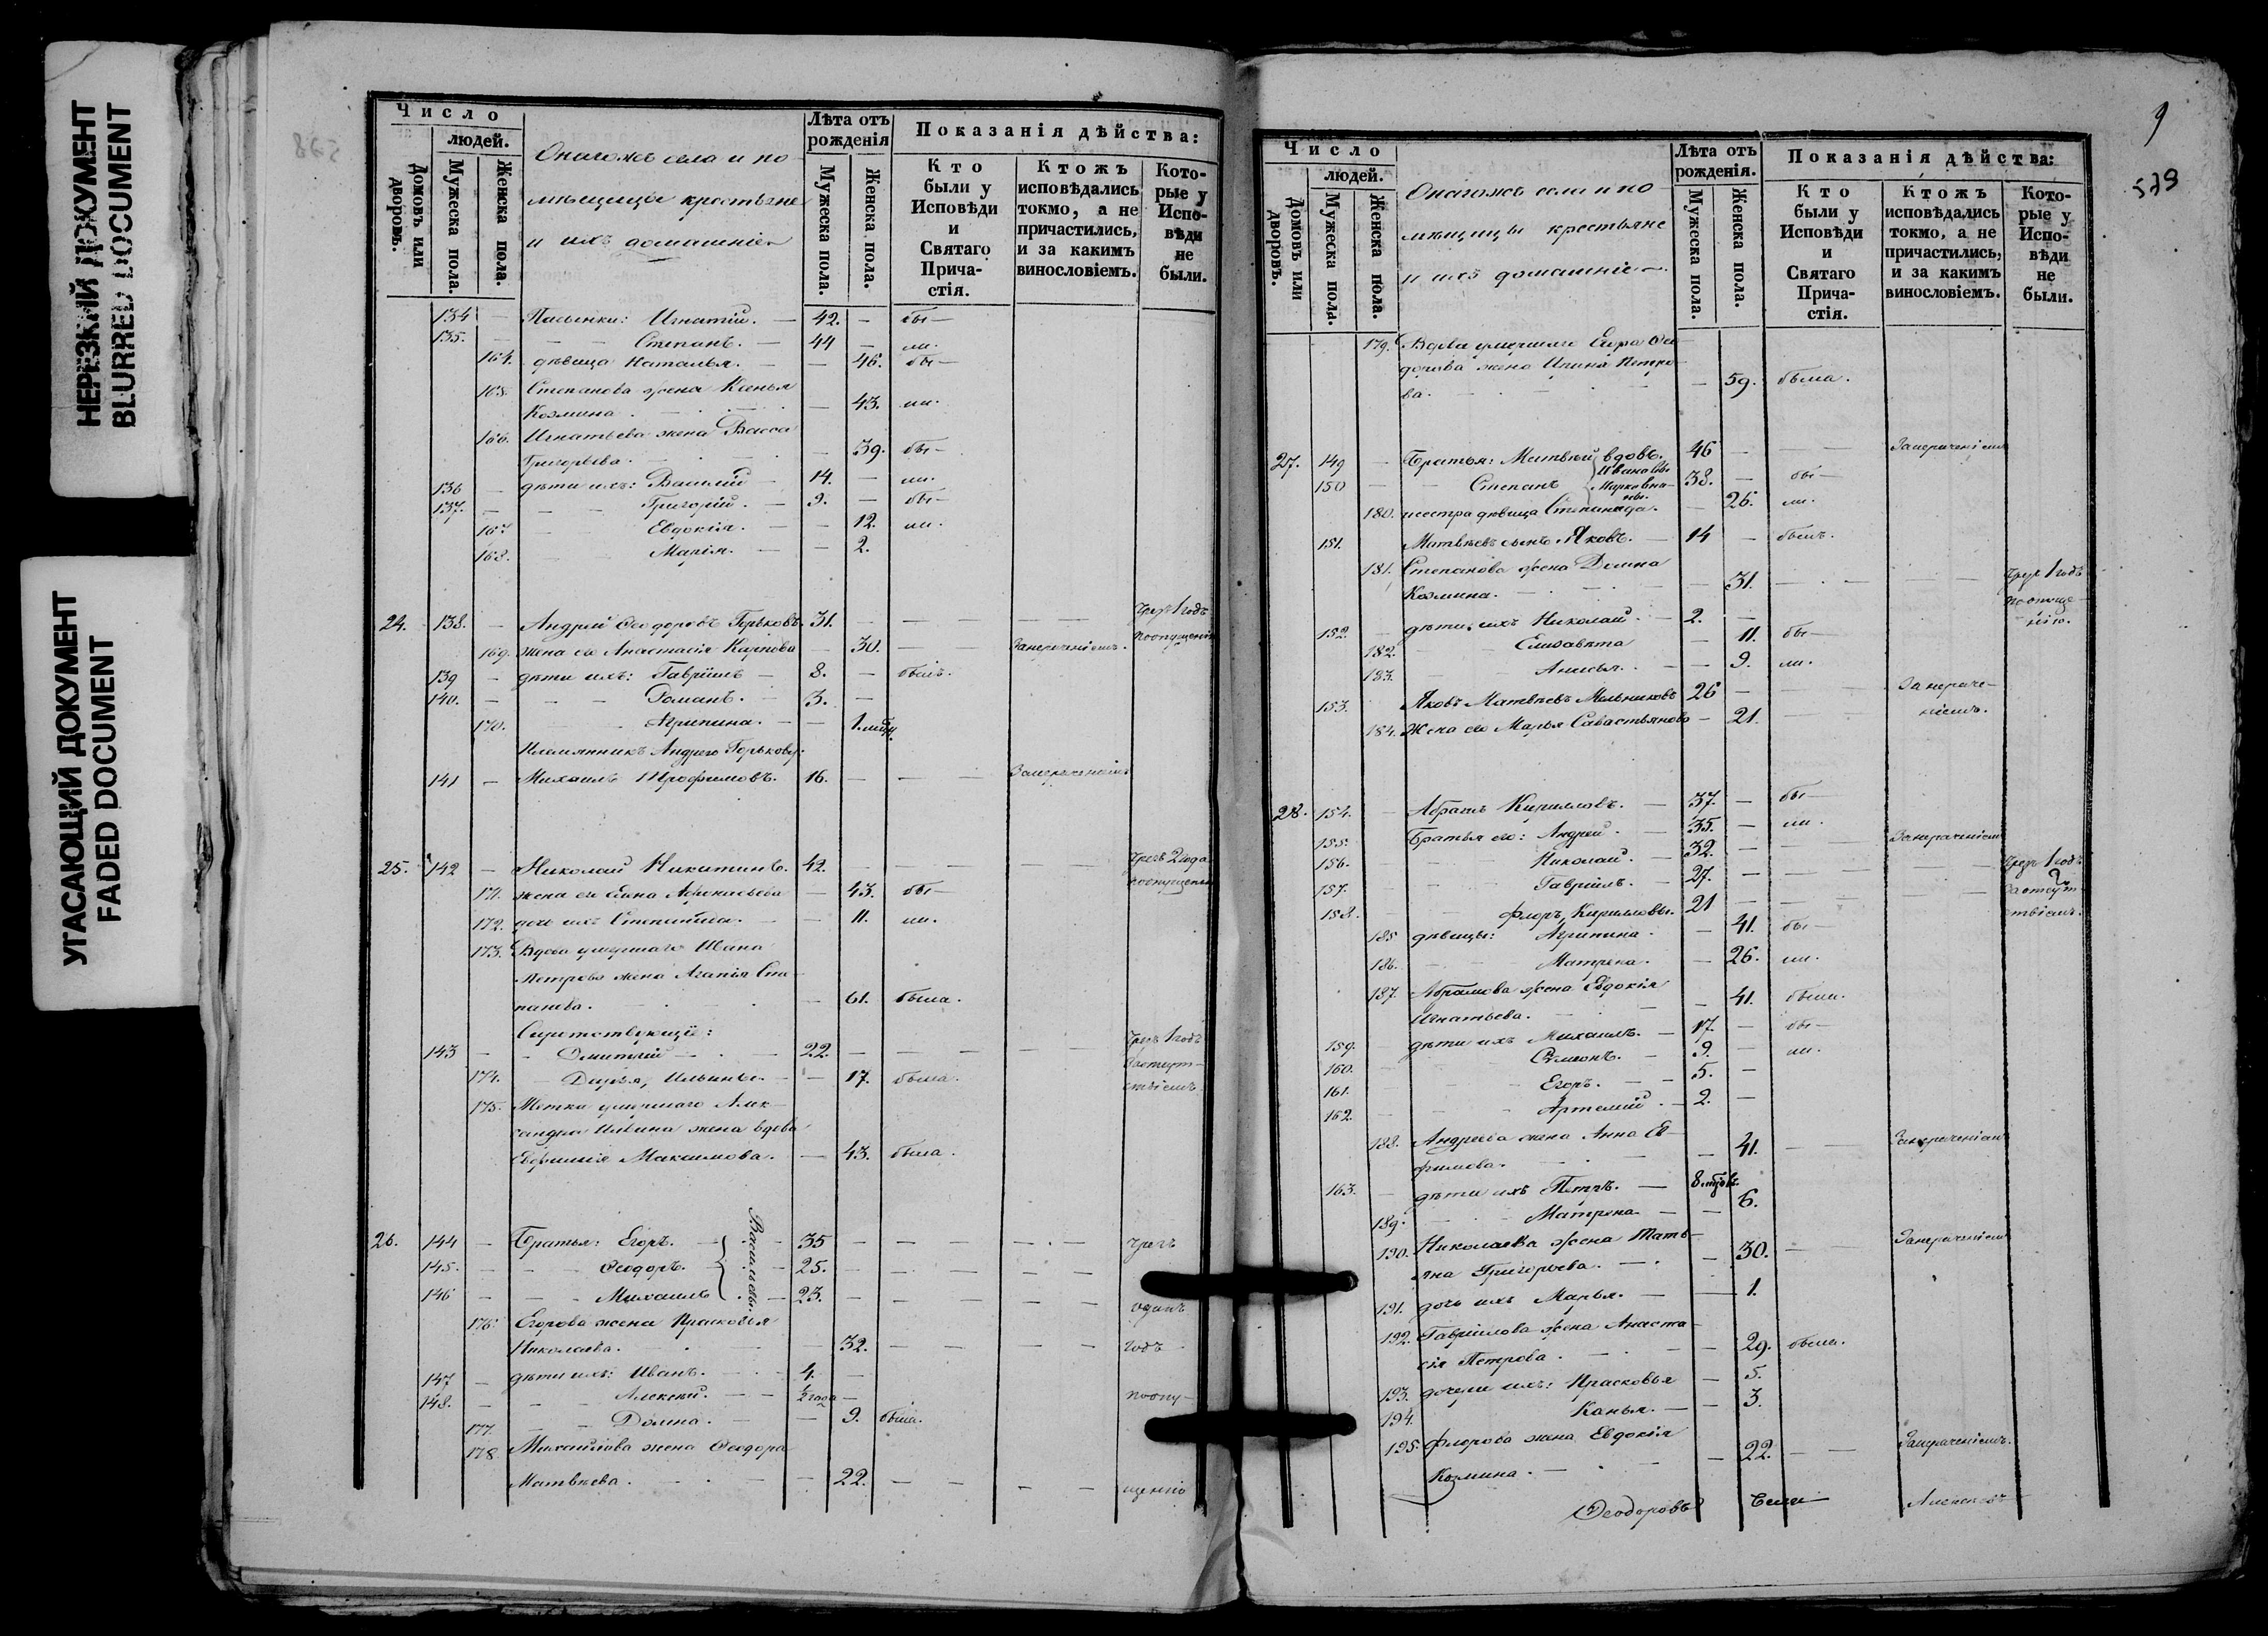 НЕРЕЗКИЙ ДОКУМЕНТ
BLURRED DOCUMENT
УГАСАЮЩИЙ ДОКУМЕНТ
FADED DOCUMENT
Число
людей.
Домовъ или дворовъ.
Мужеска пола.
Женска пола.
Онагожъ села и по-
мѣщицы крестьяне
и ихъ домашніе
Лѣта отъ рожденія
Мужеска пола.
Женска пола.
Показанія дѣйства:
Кто были у Исповѣди и Святаго Прича-стія.
Ктожъ исповѣдались токмо, а не причастились, и за какимъ винословіемъ.
Кото-рые у Испо-вѣди не были.
134 — Пасынки: Игнатій. — 42. — бы—
135. — — Степанъ. — 44 — ли.
164. дѣвица Наталья. — — 46. бы—
165. Степанова жена Ксенья
Козмина. — 43. ли.
166. Игнатьева жена Васса
Григорьева. — 39. бы—
136 — дѣти ихъ: Василій — 14. — ли.
137. — — Григорій. — 9. — бы—
167 — Евдокія. — — 12. ли.
168. — Марія. — — 2.
24. 138. — Андрей Феодоровъ Горьковъ. 31. — — — чрезъ 1 годъ
169. жена его Анастасія Карпова — 30. — занераченіемъ. поопущенію
139 — дѣти ихъ: Гавріилъ — 8. — былъ.
140. — — Романъ. — 3. —
170. Агрипина. — — 1. мѣц.
Племянникъ Андрея Горькова:
141 — Михаилъ Трофимовъ. 16. — — занераченіемъ
25. 142 — Николай Никитинъ. 42. — — — чрезъ 2 года
171. жена его Анна Афонасьева — 43. бы— поопущенію
172. дочь ихъ Степанида. — — 11. ли.
173. Вдова умершаго Ивана
Петрова жена Агапія Сте-
панова. — 61. была.
Сиротствующіе:
143 — — Дмитрій — 22. — — — чрезъ 1 годъ
174. — Дарья, Ильины. — — 17. была. заотсут-
ствіемъ
175. Метка умершаго Алек-
сандра Ильина жена вдова
Евфимія Максимова. — 43. была.
26. 144 — Братья: Егоръ. — 35 — — — чрезъ
145. — — Феодоръ. — 25. — — —
146 — — Михаилъ — 23. — — — одинъ
Васильевы.
176. Егорова жена Прасковья
Николаева. — 32. — — — годъ
147 — дѣти ихъ: Иванъ. — 4. —
148. — — Алексѣй. — ½ года — поопу-
177. — — Домна. — — 9. была.
178 Михайлова жена Феодора
Матвѣева. — 22. — — — щенію
9
579
Число
людей.
Домовъ или дворовъ.
Мужеска пола.
Женска пола.
Онагожъ села и по-
мѣщицы крестьяне
и ихъ домашніе
Лѣта отъ рожденія.
Мужеска пола.
Женска пола.
Показанія дѣйства:
Кто были у Исповѣди и Святаго Прича-стія.
Ктожъ исповѣдались токмо, а не причастились, и за какимъ винословіемъ.
Кото-рые у Испо-вѣди не были.
179. Вдова умершаго Егора Фео-
дорова жена Ирина Петро-
ва. — 59. была.
27. 149 — Братья: Матвѣй вдовъ. 46 — — занераченіемъ
150 — — Степанъ 38. — бы—
180. и сестра дѣвица Степанида. — 26. ли.
151. Матвѣевъ сынъ Яковъ. — 14 — былъ.
181. Степанова жена Домна
Козмина. — 31. — — чрезъ 1 годъ
поопуще-
нію.
152. — дѣти ихъ Николай. — 2. —
182. — Елисавета — 11. бы—
183. — Анисья. — — 9. ли.
153. Яковъ Матвѣевъ Мельниковъ 26 — — занераче-
184. Жена его Марья Савастьянова — 21. — ніемъ.
28. 154. — Абрамъ Кириловъ. — 37. — бы—
155. Братья его: Андрей. — 35. — ли.
156. — Николай. — 32. — — занераченіемъ
157. — Гавріилъ. — 27. — — — чрезъ 1 годъ
158. — Флоръ, Кириловы. 21 — — — заотсут-
ствіемъ.
185 дѣвицы: Агрипина. — 41. бы—
186. — Матрена. — 26. ли.
187. Абрамова жена Евдокія
Игнатьева. — 41. была.
159. дѣти ихъ Михаилъ. — 17. — бы—
160. — Симеонъ. — 9. — ли.
161. — Егоръ. — 5. —
162. — Артемій. — 2. —
188. Андреева жена Анна Ев-
фимова. — 41. — занераченіемъ
163. — дѣти ихъ Петръ. — 8. мѣцовъ.
189. — Матрена — — 6.
190. Николаева жена Тать-
яна Григорьева. — 30. — занераченіемъ
191. дочь ихъ Марья. — — 1.
192. Гавріилова жена Анаста-
сія Петрова. — 29. была.
193. дочери ихъ: Прасковья — 5.
194. Ксенья. — — 3.
195. Флорова жена Евдокія
Козмина. — 22. — занераченіемъ.
Феодоровъ Алексѣевъ